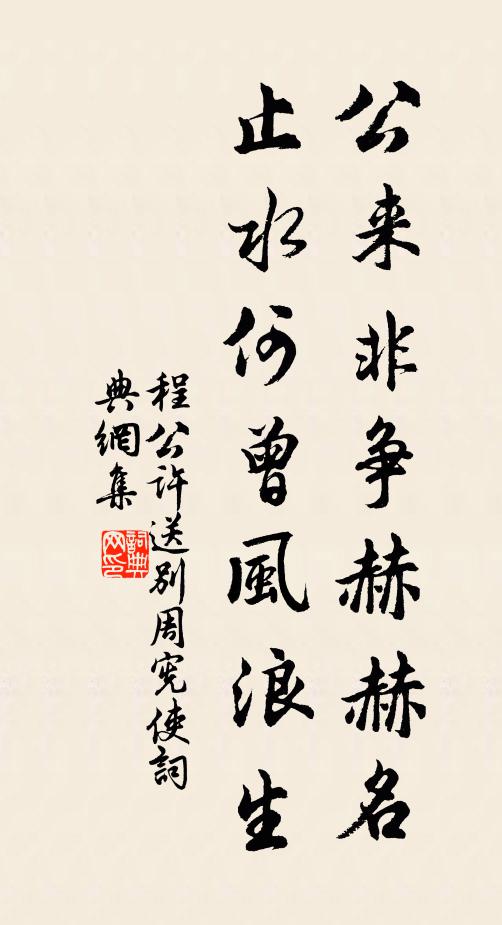 公来非争赫赫名
止水何曾風浪生
程公許送别周宪使詞
典網集
詞典網印